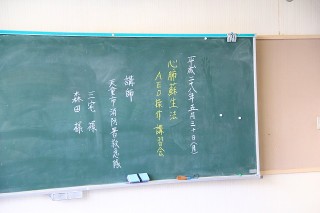 平成二十八年五月三十日(月)
心肺蘇生法
AED操作 講習会
講師
天童市消防署救急係
三宅 様
森田 様